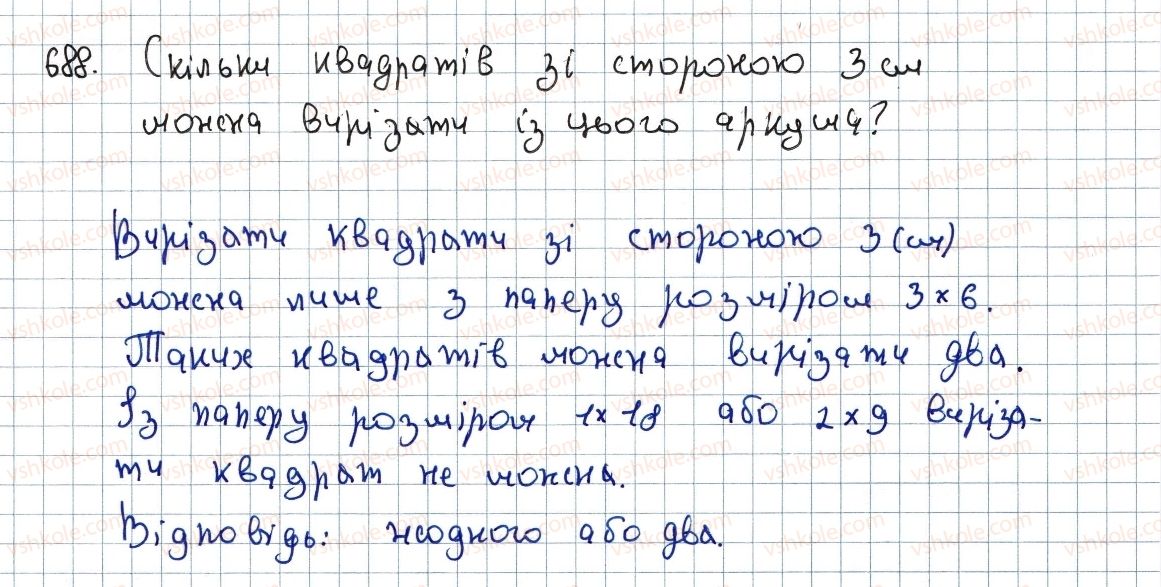 688. Скільки квадратів зі стороною 3 см
можна вирізати із цього аркуша?
Вирізати квадрати зі стороною 3 (см)
можна лише з паперу розміром 3 × 6.
Таких квадратів можна вирізати два.
Із паперу розміром 1 × 18 або 2 × 9 виріза-
ти квадрат не можна.
Відповідь: жодного або два.